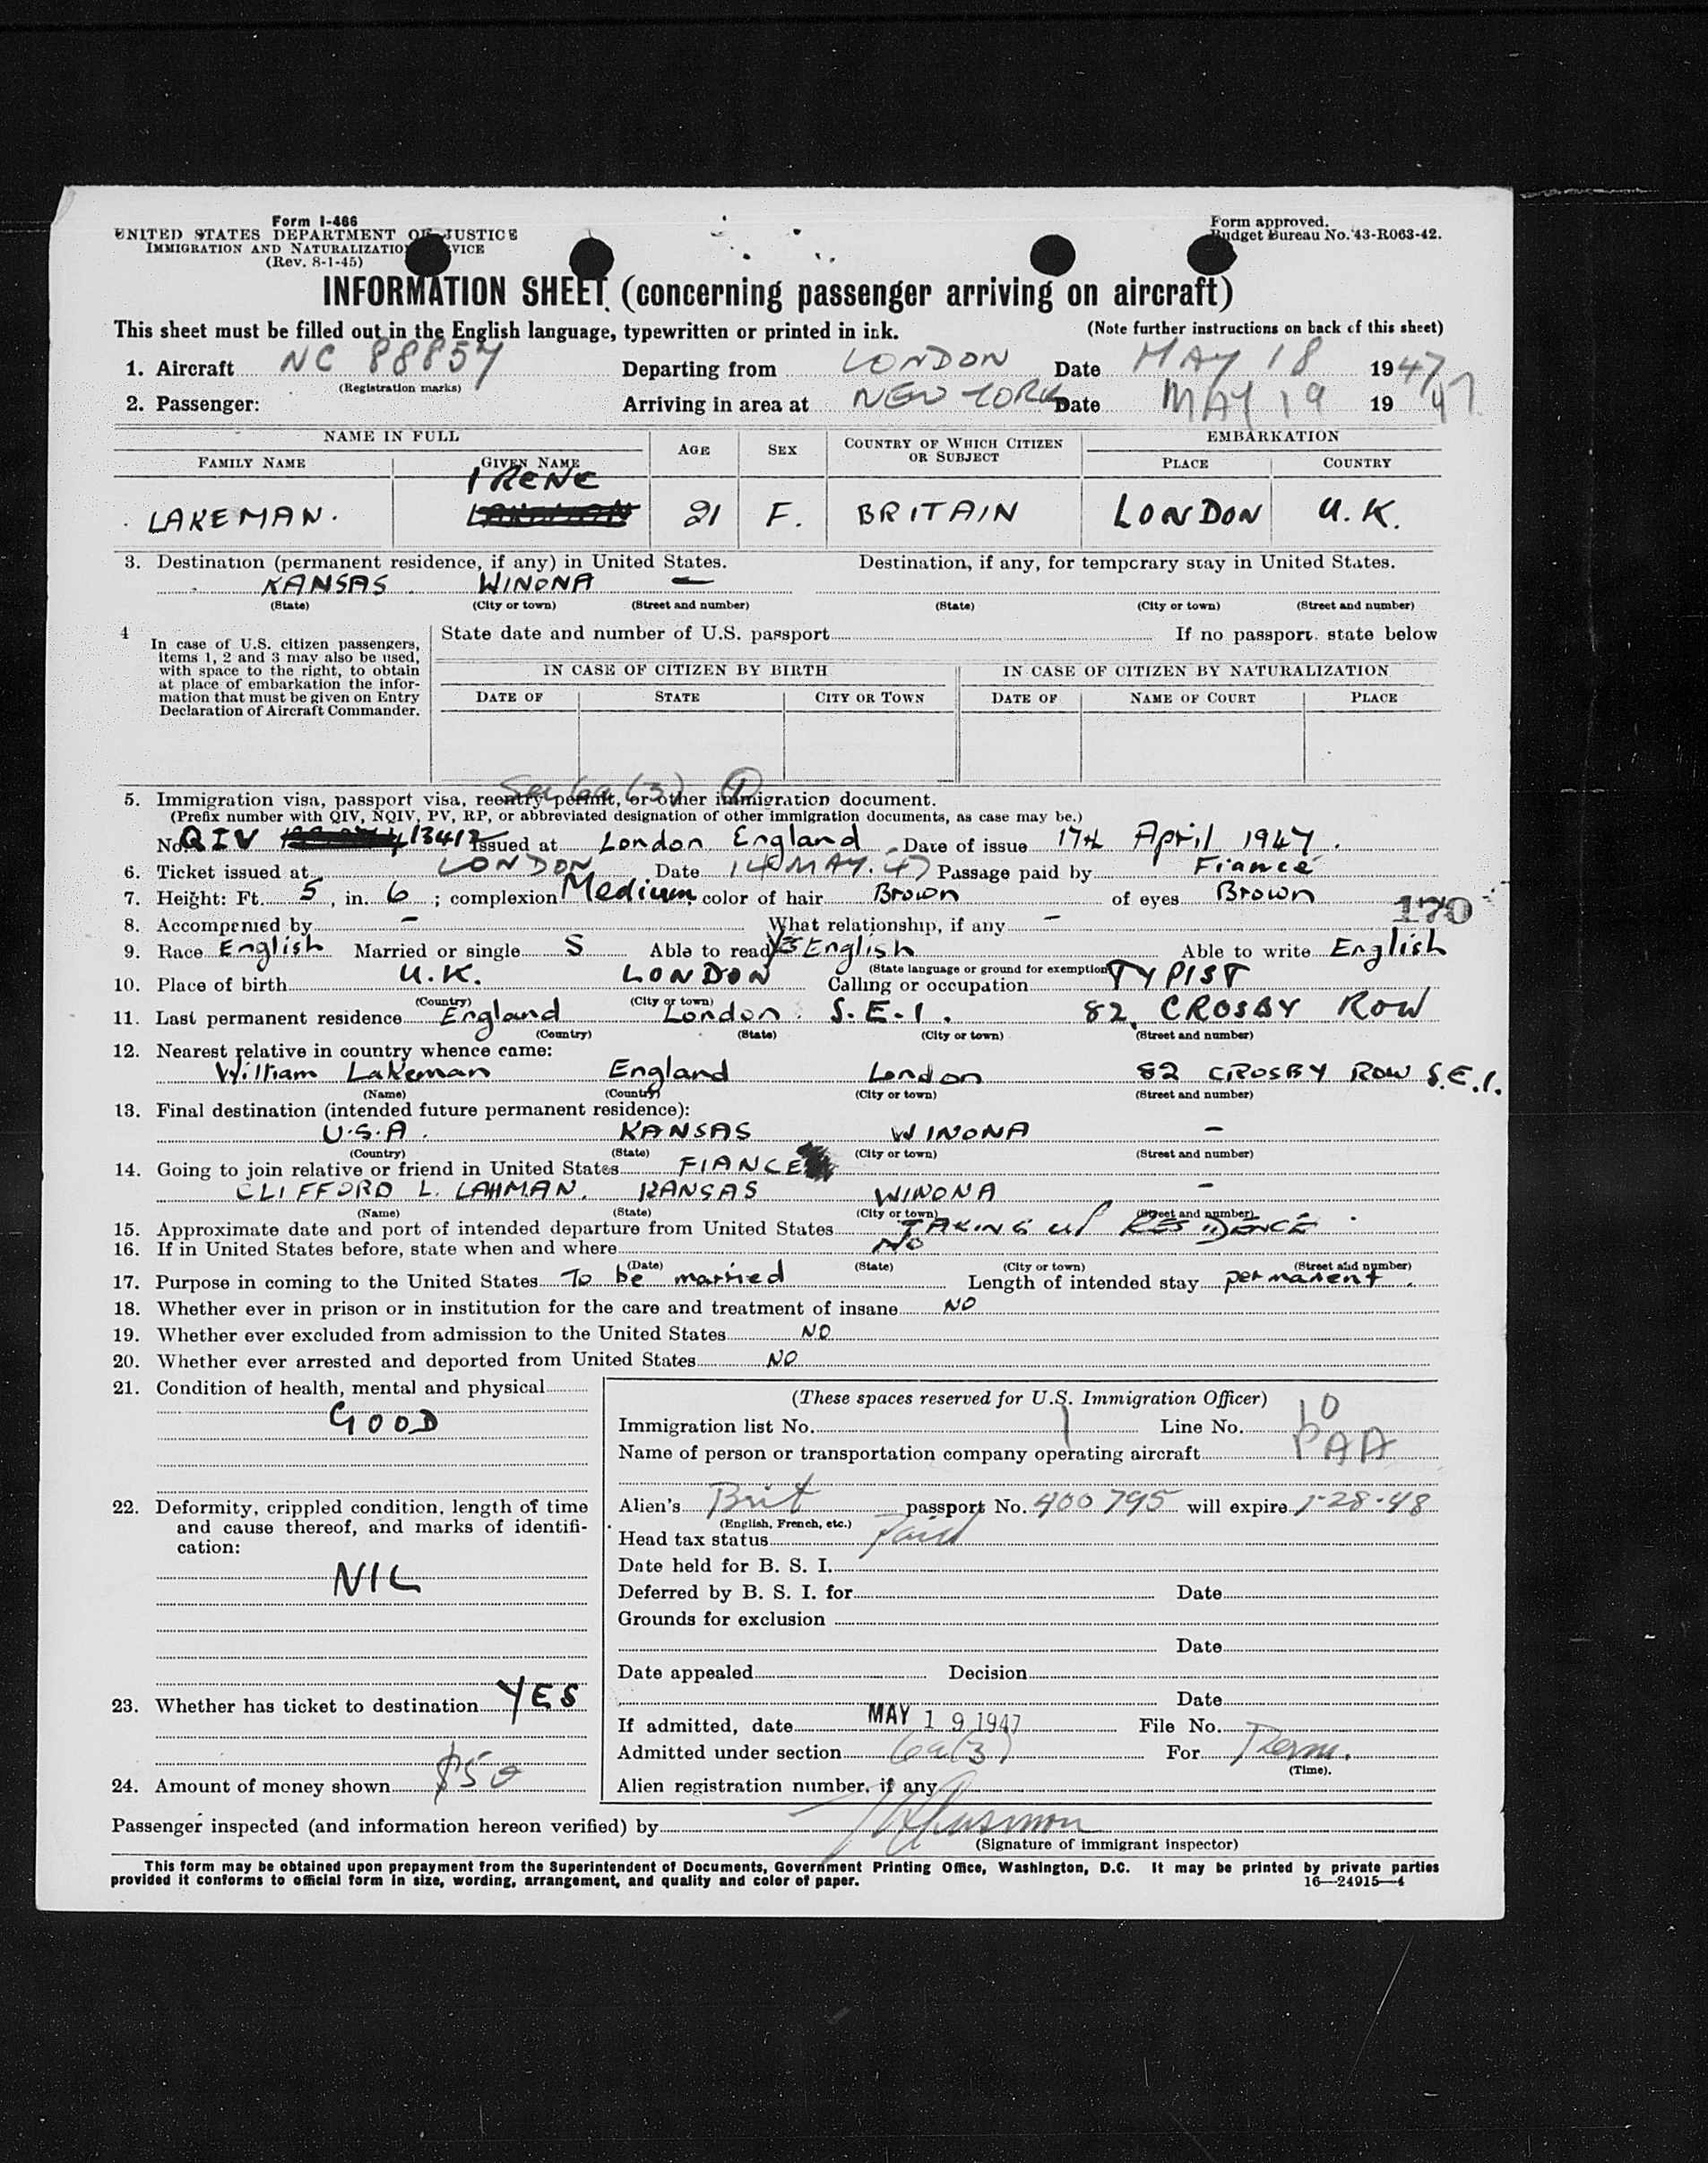 Form I-466
UNITED STATES DEPARTMENT OF JUSTICE
IMMIGRATION AND NATURALIZATION SERVICE
(Rev. 8-1-45)
Form approved.
Budget Bureau No. 43-R063-42.
INFORMATION SHEET (concerning passenger arriving on aircraft)
This sheet must be filled out in the English language, typewritten or printed in ink. (Note further instructions on back of this sheet)
1. Aircraft NC 88857 Departing from LONDON Date MAY 18 1947
(Registration marks)
2. Passenger: Arriving in area at NEW YORK Date MAY 19 1947
NAME IN FULL AGE SEX COUNTRY OF WHICH CITIZEN OR SUBJECT EMBARKATION
FAMILY NAME GIVEN NAME PLACE COUNTRY
IRENE
LAKEMAN. LAKEMAN 21 F. BRITAIN LONDON U.K.
3. Destination (permanent residence, if any) in United States. Destination, if any, for temporary stay in United States.
KANSAS WINONA —
(State) (City or town) (Street and number) (State) (City or town) (Street and number)
4 In case of U.S. citizen passengers, items 1, 2 and 3 may also be used, with space to the right, to obtain at place of embarkation the information that must be given on Entry Declaration of Aircraft Commander.
State date and number of U.S. passport If no passport. state below
IN CASE OF CITIZEN BY BIRTH IN CASE OF CITIZEN BY NATURALIZATION
DATE OF STATE CITY OR TOWN DATE OF NAME OF COURT PLACE
Sec 6a(3) 1
5. Immigration visa, passport visa, reentry permit, or other immigration document.
(Prefix number with QIV, NQIV, PV, RP, or abbreviated designation of other immigration documents, as case may be.)
No. QIV 13412 Issued at London England Date of issue 17th April 1947.
6. Ticket issued at LONDON Date 14 MAY. 47 Passage paid by Fiancé
7. Height: Ft. 5, in. 6; complexion Medium color of hair Brown of eyes Brown
170
8. Accompanied by - What relationship, if any -
9. Race English Married or single S Able to read YES English Able to write English
(State language or ground for exemption)
10. Place of birth U.K. LONDON Calling or occupation TYPIST
(Country) (City or town)
11. Last permanent residence England London S.E.1. 82, CROSBY ROW
(Country) (State) (City or town) (Street and number)
12. Nearest relative in country whence came:
William Lakeman England London 82 CROSBY ROW S.E.1.
(Name) (Country) (City or town) (Street and number)
13. Final destination (intended future permanent residence):
U.S.A. KANSAS WINONA -
(Country) (State) (City or town) (Street and number)
14. Going to join relative or friend in United States FIANCE
CLIFFORD L. LAHMAN. KANSAS WINONA -
(Name) (State) (City or town) (Street and number)
15. Approximate date and port of intended departure from United States TAKING UP RESIDENCE
16. If in United States before, state when and where No
(Date) (State) (City or town) (Street and number)
17. Purpose in coming to the United States To be married Length of intended stay permanent.
18. Whether ever in prison or in institution for the care and treatment of insane NO
19. Whether ever excluded from admission to the United States NO
20. Whether ever arrested and deported from United States NO
21. Condition of health, mental and physical
GOOD
22. Deformity, crippled condition, length of time and cause thereof, and marks of identification:
NIL
23. Whether has ticket to destination YES
24. Amount of money shown $50
(These spaces reserved for U.S. Immigration Officer)
Immigration list No. 1 Line No. 10
Name of person or transportation company operating aircraft PAA
Alien's Brit passport No. 400795 will expire 1-28-48
(English, French, etc.)
Head tax status Paid
Date held for B. S. I.
Deferred by B. S. I. for Date
Grounds for exclusion
Date
Date appealed Decision
Date
If admitted, date MAY 19 1947 File No.
Admitted under section 6a(3) For Perm.
(Time).
Alien registration number, if any
Passenger inspected (and information hereon verified) by
(Signature of immigrant inspector)
This form may be obtained upon prepayment from the Superintendent of Documents, Government Printing Office, Washington, D.C. It may be printed by private parties
provided it conforms to official form in size, wording, arrangement, and quality and color of paper. 16—24915—4